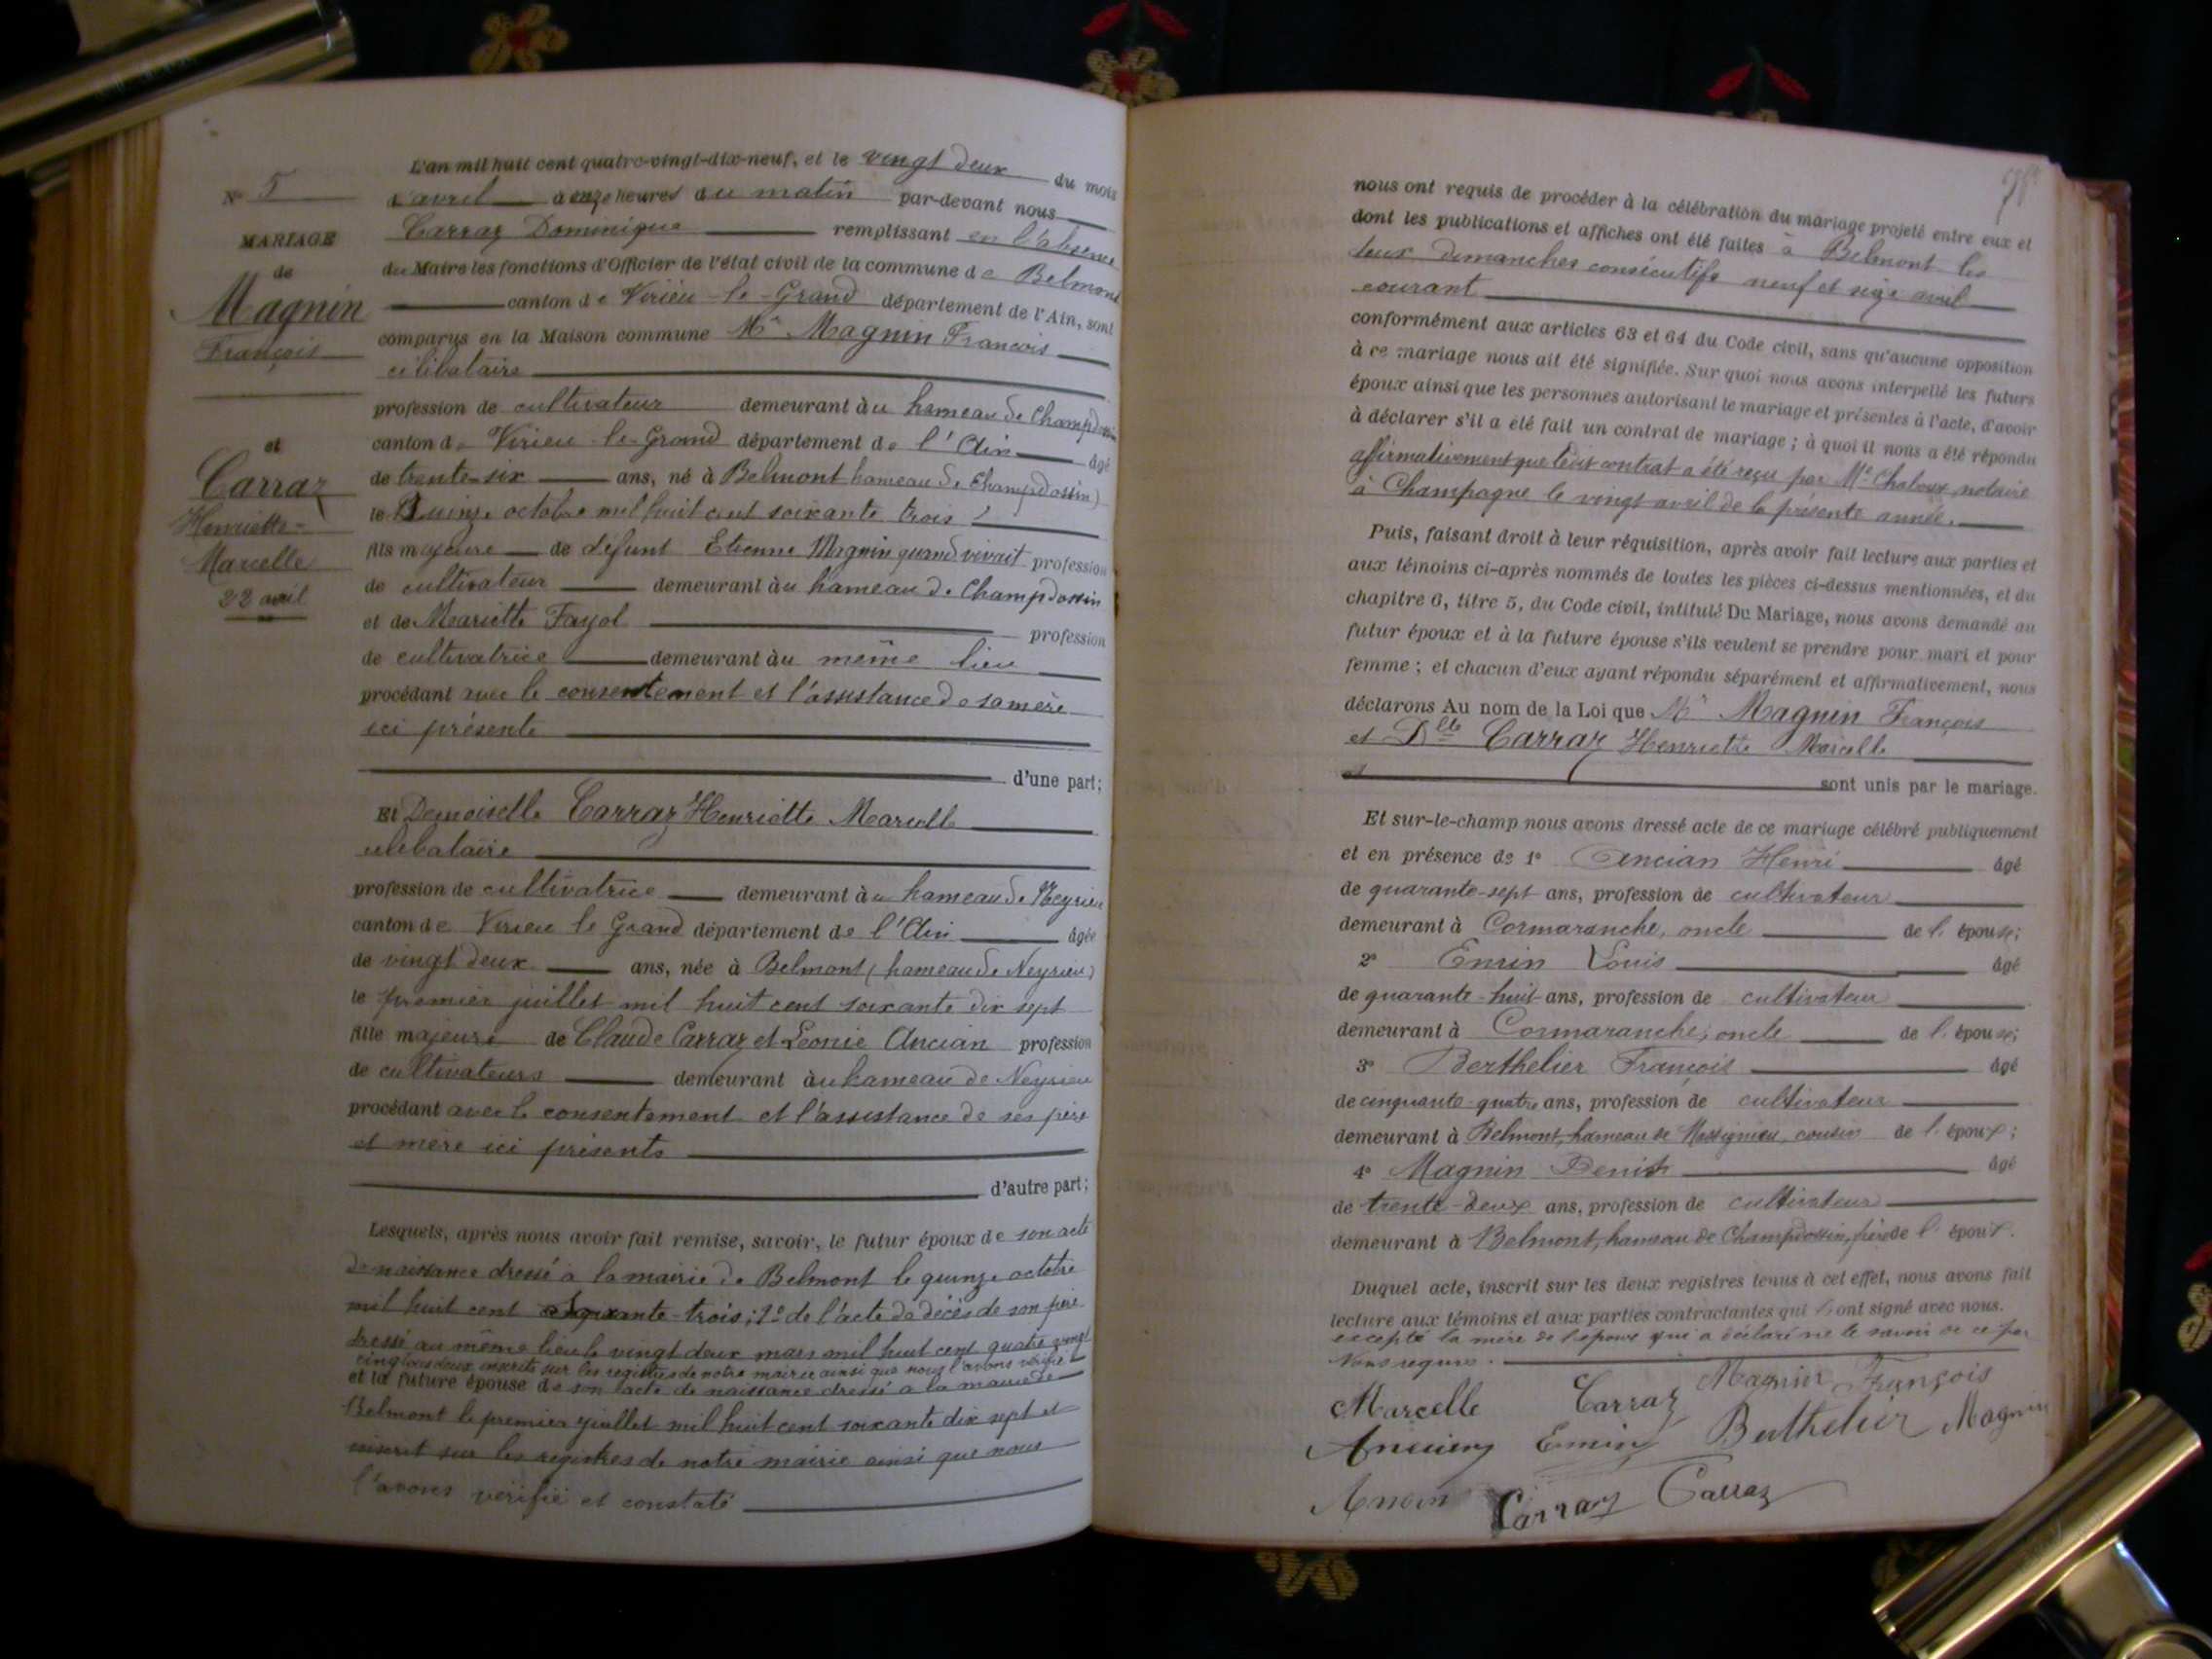 N° 5
MARIAGE
de
Magnin
François
et
Carraz
Henriette-
Marcelle
22 avril
L'an mil huit cent quatre-vingt-dix-neuf, et le vingt deux du mois
d'avril à onze heures du matin par-devant nous
Carraz Dominique remplissant en l'absence
du Maire les fonctions d'Officier de l'état civil de la commune de Belmont
canton de Virieu-le-Grand département de l'Ain, sont
comparus en la Maison commune Mr Magnin François
célibataire
profession de cultivateur demeurant au hameau de Champdossin
canton de Virieu-le-Grand département de l'Ain âgé
de trente-six ans, né à Belmont hameau de Champdossin)
le Quinze octobre mil huit cent soixante trois
fils majeur de défunt Etienne Magnin quand vivait profession
de cultivateur demeurant au hameau de Champdossin
et de Mariette Fayol profession
de cultivatrice demeurant au même lieu
procédant avec le consentement et l'assistance de sa mère
ici présente
d'une part;
Et Demoiselle Carraz Henriette Marcelle
célibataire
profession de cultivatrice demeurant au hameau de Neyrieu
canton de Virieu le Grand département de l'Ain âgée
de vingt deux ans, née à Belmont (hameau de Neyrieu)
le premier juillet mil huit cent soixante dix sept
fille majeure de Claude Carraz et Léonie Ancian profession
de cultivateurs demeurant au hameau de Neyrieu
procédant avec le consentement et l'assistance de ses père
et mère ici présents
d'autre part;
Lesquels, après nous avoir fait remise, savoir, le futur époux de son acte
de naissance dressé à la mairie de Belmont le quinze octobre
mil huit cent soixante-trois; 2° de l'acte de décès de son père
dressé au même lieu le vingt deux mars mil huit cent quatre vingt
cinq tous deux inscrits sur les registres de notre mairie ainsi que nous l'avons vérifié
et la future épouse de son acte de naissance dressé à la mairie de
Belmont le premier juillet mil huit cent soixante dix sept et
inscrit sur les registres de notre mairie ainsi que nous
l'avons vérifié et constaté
nous ont requis de procéder à la célébration du mariage projeté entre eux et
dont les publications et affiches ont été faites à Belmont les
deux dimanches consécutifs neuf et seize avril
courant
conformément aux articles 63 et 64 du Code civil, sans qu'aucune opposition
à ce mariage nous ait été signifiée. Sur quoi nous avons interpellé les futurs
époux ainsi que les personnes autorisant le mariage et présentes à l'acte, d'avoir
à déclarer s'il a été fait un contrat de mariage; à quoi il nous a été répondu
affirmativement que ledit contrat a été reçu par Me Chaloux, notaire
à Champagne le vingt avril de la présente année.
Puis, faisant droit à leur réquisition, après avoir fait lecture aux parties et
aux témoins ci-après nommés de toutes les pièces ci-dessus mentionnées, et du
chapitre 6, titre 5, du Code civil, intitulé Du Mariage, nous avons demandé au
futur époux et à la future épouse s'ils veulent se prendre pour mari et pour
femme; et chacun d'eux ayant répondu séparément et affirmativement, nous
déclarons Au nom de la Loi que Mr Magnin François
et Dlle Carraz Henriette Marcelle
sont unis par le mariage.
Et sur-le-champ nous avons dressé acte de ce mariage célébré publiquement
et en présence de 1° Ancian Henri âgé
de quarante-sept ans, profession de cultivateur
demeurant à Cormaranche, oncle de l'épouse;
2° Emin Louis âgé
de quarante-huit ans, profession de cultivateur
demeurant à Cormaranche, oncle de l'épouse;
3° Berthelier François âgé
de cinquante-quatre ans, profession de cultivateur
demeurant à Belmont, hameau de Massignieu, cousin de l'époux;
4° Magnin Denis âgé
de trente-deux ans, profession de cultivateur
demeurant à Belmont, hameau de Champdossin, frère de l'époux.
Duquel acte, inscrit sur les deux registres tenus à cet effet, nous avons fait
lecture aux témoins et aux parties contractantes qui l'ont signé avec nous.
excepté la mère de l'époux qui a déclaré ne le savoir de ce par
Nous requis.
Marcelle Carraz Magnin François
Ancian Emin Berthelier Magnin
Carraz Carraz